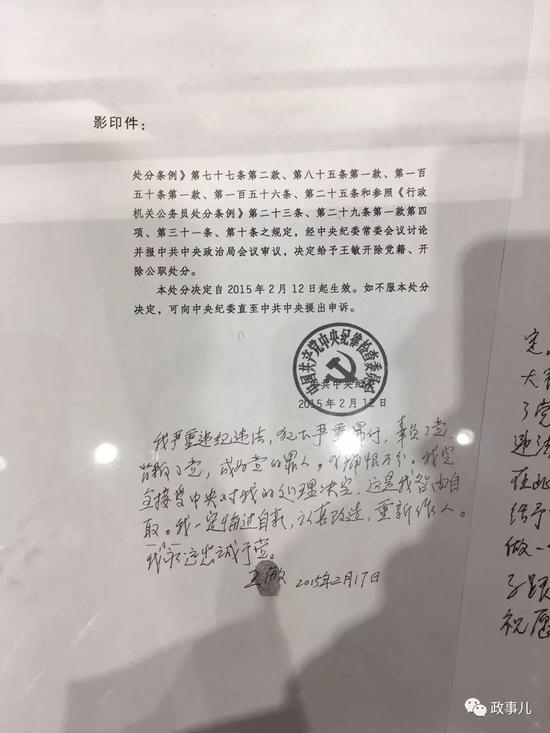 影印件：
处分条例》第七十七条第二款、第八十五条第一款、第一百
五十条第一款、第一百五十六条、第二十五条和参照《行政
机关公务员处分条例》第二十三条、第二十九条第一款第四
项、第三十一条、第十条之规定，经中央纪委常委会议讨论
并报中共中央政治局会议审议，决定给予王敏开除党籍、开
除公职处分。
本处分决定自2015年2月12日起生效。如不服本处分
决定，可向中央纪委直至中共中央提出申诉。
中国共产党中央纪律检查委员会
中共中央纪
2015年2月12日
我严重违纪违法，犯下严重罪行，辜负了党，
背叛了党，成为党的罪人，我痛恨万分。我完
全接受中央对我的处理决定，这是我咎由自
取。我一定悔过自新，认真改造，重新做人。
我永远忠诚于党。
王敏 2015年2月17日
定。
大
了党
违法
在此
给予
做一
子跟
祝愿
政事儿